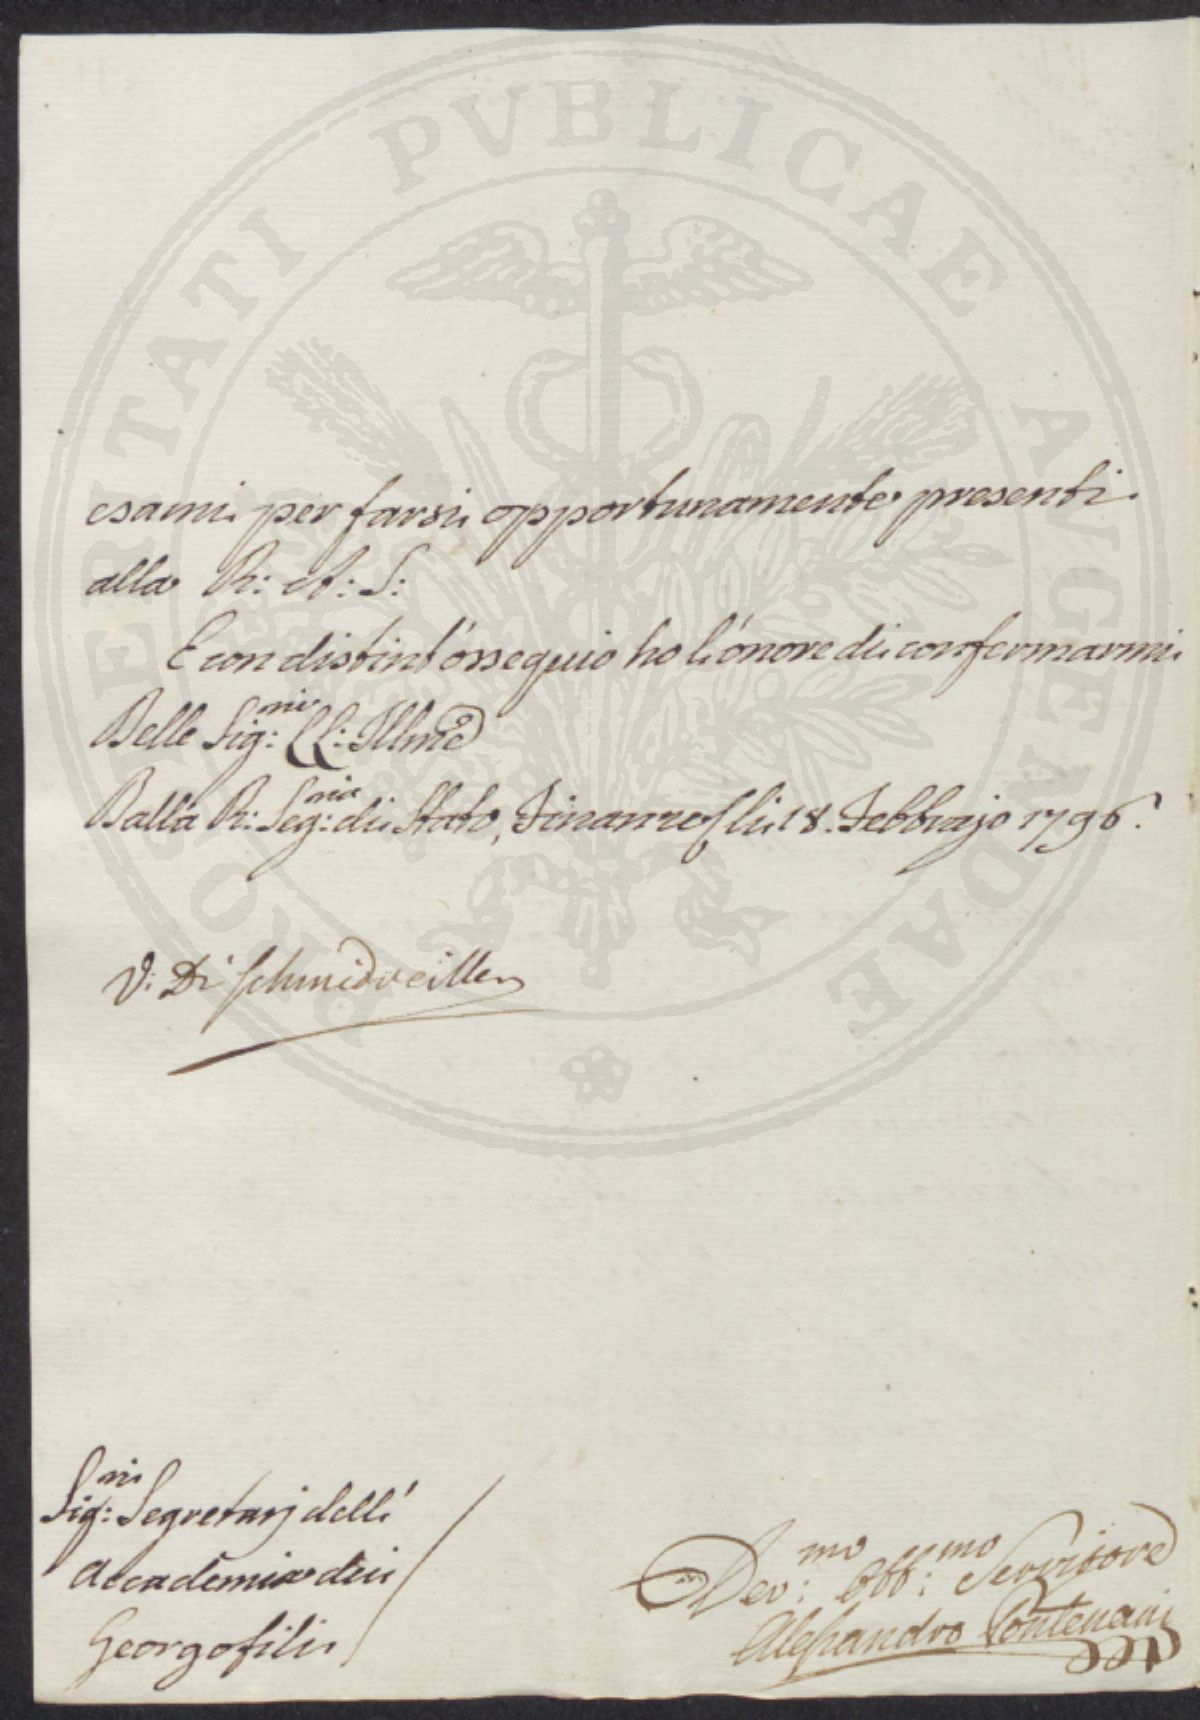 PROSPERITATI PVBLICAE AVGENDAE
esami per farsi opportunamente presenti
alla R: A: S:
E con distint'ossequio ho l'onore di confermarmi
Delle Sig:rie LL: Illme
Dalla R: Seg:ria di Stato, Finanze li 18. Febbrajo 1796.
V: Di Schmidveiller
Sig:ri Segretarj dell'
Accademia dei
Georgofili
Dev:mo Obb:mo Servitore
Alessandro Pontenani